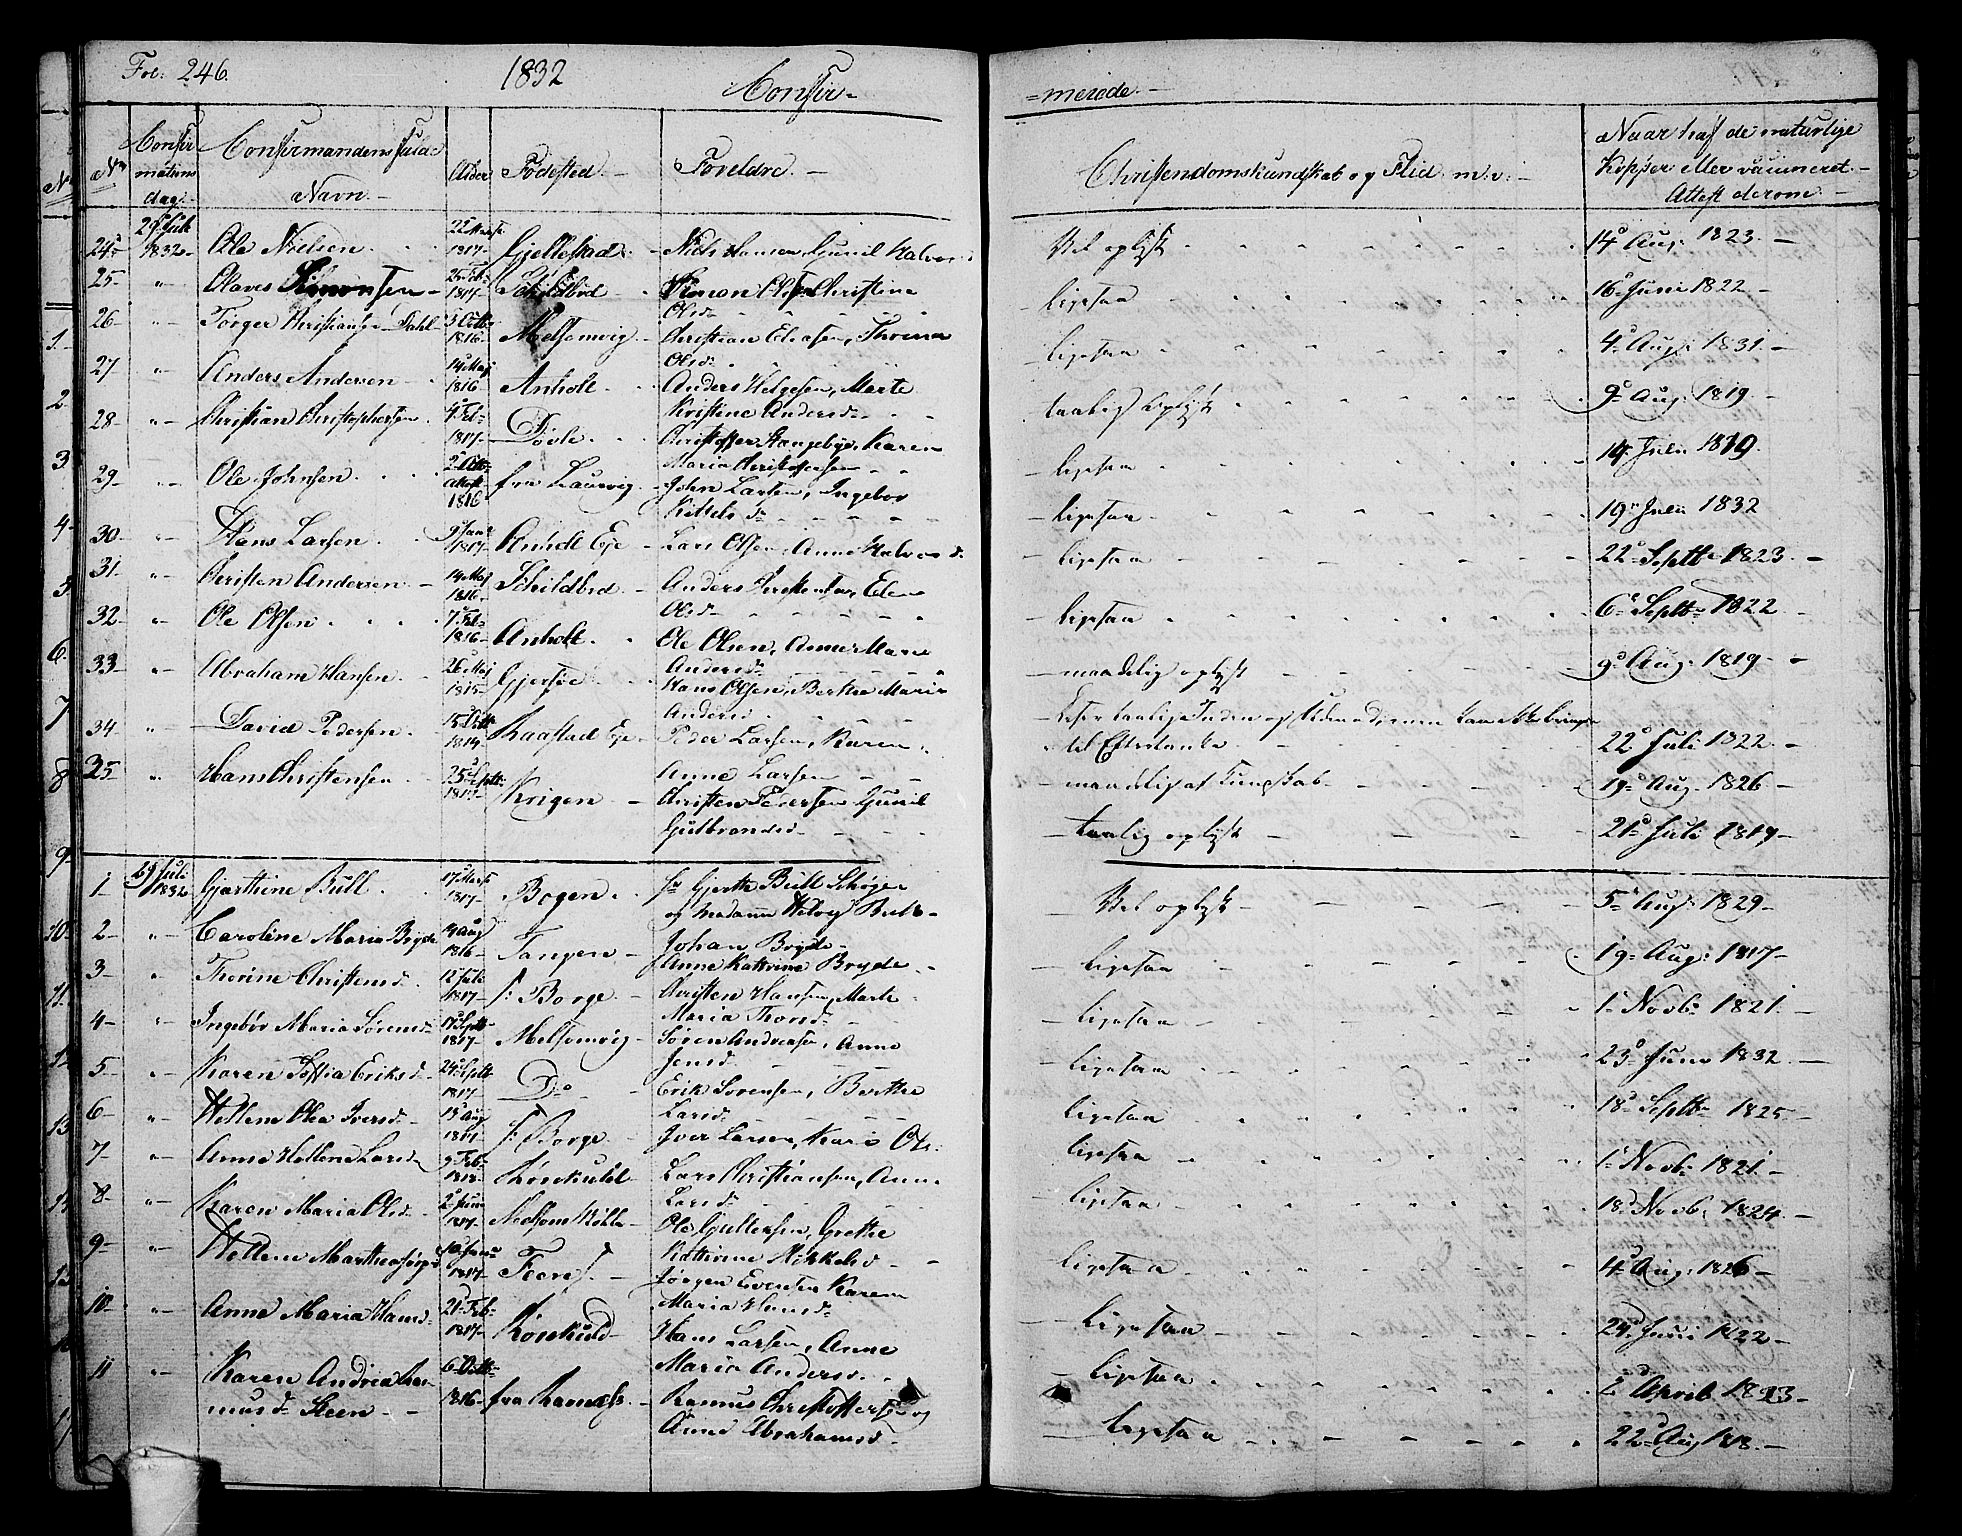 Fol: 246.
1832
Confir-
-merede.-
No
Confirmations dag.-
Confirmandens fulde Navn.-
Alder
Fødested.-
Foreldre.-
Christendomskundskab og Flid m. v:-
Naar haft de naturlige Kopper eller vaccineret.- Attest derom.-
24- 29 Juli 1832- Ole Nielsen. 22 Marts 1817- Gjellestad.- Niels Hansen, Gunil Halvorsd - Vel oplyst 14 Aug: 1823.-
25- "- Olaves Simonsen- 25 Feb- 1817- Schildbred - Simon Olsen Christine Olsd- - ligesaa 16 Juni 1822-
26- "- Torger Christianse Dahl 3 Octb 1816- Melsomvig.- Christian Eliasen, Thorina Olsd- - ligesaa 4 Aug: 1831-
27 "- Anders Andersen- 14 Maj 1816- Anholt. Anders Helgesen, Marte Kirstine Andersd- - taalig Oplyst 9 Aug: 1819-
28- "- Christian Christophersen 4 Feb- 1817- Døvle. Christoffer Stangebye, Karen Maria Christoffersen - ligesaa 14 Juli 1819.
29- "- Ole Johnsen. 2 Octb attest 1816 fra Laurvig- John Larsen, Ingebor Kittelsd- - ligesaa 19 Juli 1832
30- "- Hans Larsen. 9 Janu 1817- Anholt Eje - Lars Olsen, Anne Halvorsd. - ligesaa 22 Septb- 1823.-
31- "- Christen Andersen- 14 Maj 1816- Schildbred - Anders Christensen, Elen Olsd- - ligesaa 6 Septb- 1822
32- "- Ole Olsen. 7 Feb- 1816- Anholt. Ole Olsen, Anne Marie Andersd- - maadelig oplyst 9 Aug: 1819-
33- "- Abraham Hansen.- 26 Maj 1815- Gjersøe Hans Olsen, Berthe Maria Andersd. - Leser taalig Inden og Udenad, men kan ikke bringes til Eftertanke - 22 Juli 1822.-
34- "- David Pedersen. 15 Octb 1814- Raastad Eje- Peder Larsen, Karen Anne Larsen - maadelig af Kundskab- 19 Aug. 1826-
35- "- Hans Christensen 25 Septb- 1817- Krigen - Christen Pedersen Gunil Gulbrandsd. - taalig oplyst 21 Juli 1819-
1- 29 Juli 1832 Gjerthine Bull. 17 Marts 1817- Bogen. Hr Gjerth Bull Schøyer og Madamm Helvig Bull- - Vel oplyst- 5 Aug: 1829-
2- "- Caroline Maria Bryde 19 Aug 1816- Tangen- Johan Bryde- Anne Kathrine Bryde- - ligesaa 19 Aug: 1817-
3- " Thorine Christensd. 12 Juli 1817- s: Borge.- Christen Hansen, Marte Maria Thorsd- - ligesaa 1 Novb- 1821.
4- "- Ingebor Maria Sørensd- 17 Septb- 1817- Melsomvig- Søren Andreasen, Anne Jensd- - ligesaa 23 Juni 1832.-
5- "- Karen Sofia Eriksd- 24 Septb 1817- Do- Erik Sørensen, Berthe Larsd- - ligesaa 18 Septb- 1825.
6- "- Hellene Olea Iversd- 15 Aug 1817- s: Borge.- Iver Larsen, Kari Ols - ligesaa 1 Novb- 1821.-
7- "- Anne Hellene Larsd- 9 Feb- 1818- Røsekuld- Lars Christiansen, Anne Larsd- - ligesaa 18 Novb, 1824.-
8- "- Karen Maria Olsd- 2 Juni 1817- Melsom Kølle- Ole Gulliksen, Grethe Kathrine Mikkelsd - - ligesaa 4 Aug: 1826-
9- "- Hellene Marthea Jørgensd 10 Janu 1817- Jørgen Evensen Karen Maria Hansd- - ligesaa 24 Juni 1822-
10- "- Anne Maria Hansd- 21 Feb- 1817- Røsekuld- Hans Larsen, Anne Maria Andersd. - ligesaa 2 April 1823-
11 "- Karen Andrea Rasmusd- Steen- 6 Octb- 1816- fra Ramnæs.- Rasmus Christoffersen og Anne Abrahamsd.- - ligesaa 22 Aug 1818.-